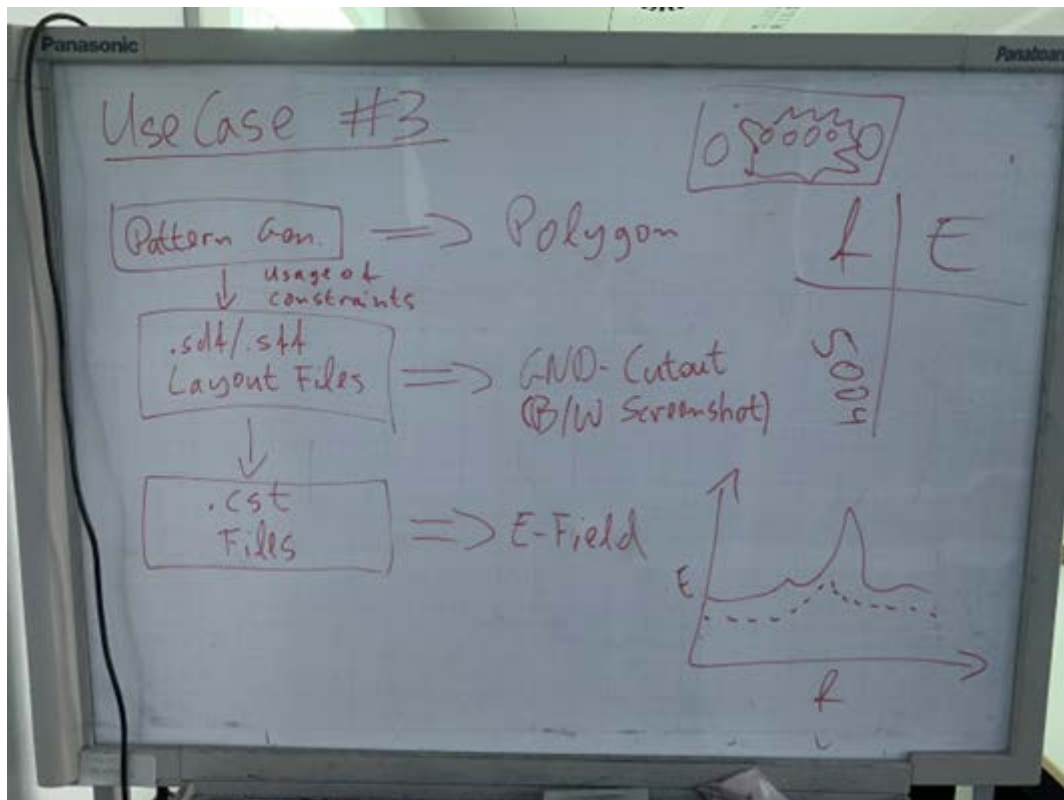 Panasonic
Panaboard
UseCase #3
Pattern Gen.
=> Polygon
usage of
constraints
.sdf/.stf
Layout Files
=> GND-Cutout
(B/W Screenshot)
.cst
Files
=> E-Field
f E
E
f